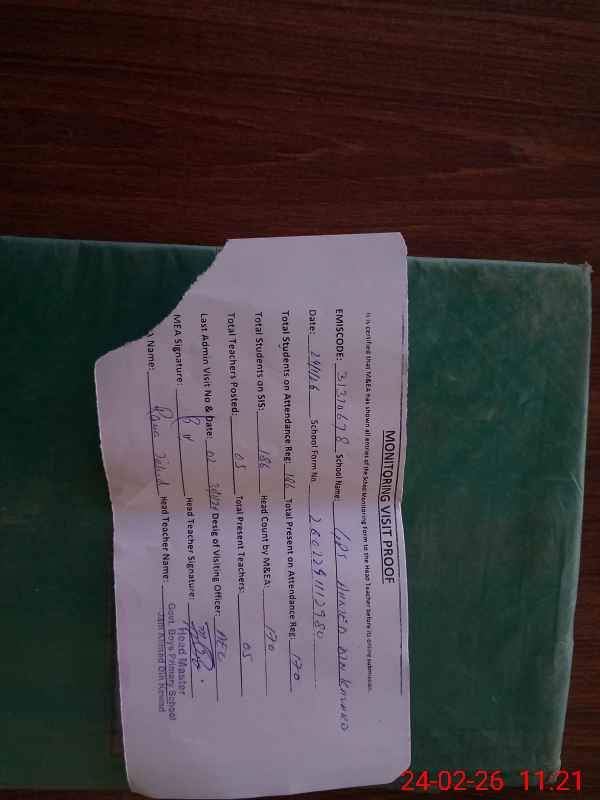 MONITORING VISIT PROOF
It is certified that M&EA has shown all entries of the School Monitoring Form to the Head Teacher before its online submission.
EMISCODE: 31370678 School Name: GPS AHMED DIN
Date: School Form No. 2602241112980
Total Students on Attendance Reg: 186 Total Present on Attendance Reg: 170
Total Students on SIS: 186 Head Count by M&EA: 170
Total Teachers Posted: 05 Total Present Teachers: 05
Last Admin Visit No & Date: 02 Desig of Visiting Officer: AEO
MEA Signature: Head Teacher Signature:
Name: Rana Head Teacher Name:
Head Master
Govt. Boys Primary School
Jam Ahmed Din
24-02-26 11:21